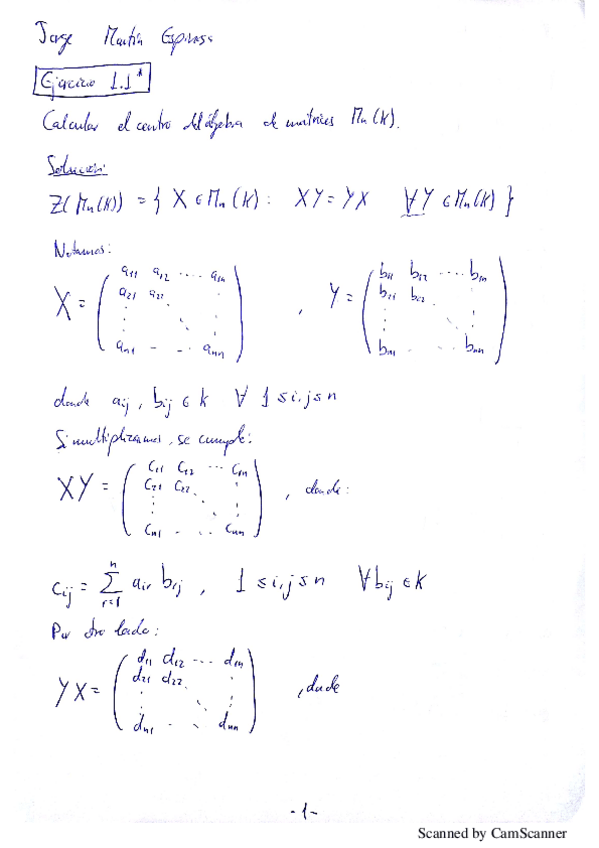 Jorge Martín Espinosa
Ejercicio 1.1*
Calcular el centro del álgebra de matrices Mn(K).
Solución:
Z(Mn(K)) = { X ∈ Mn(K) : XY = YX ∀Y ∈ Mn(K) }
Notamos:
X = ( a11 a12 ···· a1n , Y = ( b11 b12 ···· b1n
a21 a22 b21 b22
an1 - - ann ) bn1 - - bnn )
donde aij, bij ∈ k ∀ 1 ≤ i,j ≤ n
Si multiplicamos, se cumple:
XY = ( c11 c12 ··· c1n , donde:
c21 c22
cn1 - - cnn )
cij = ∑ⁿr=1 air brj , 1 ≤ i,j ≤ n ∀bij ∈ K
Por otro lado:
YX = ( d11 d12 ··· d1n , donde
d21 d22
dn1 - - dnn )
-1-
Scanned by CamScanner